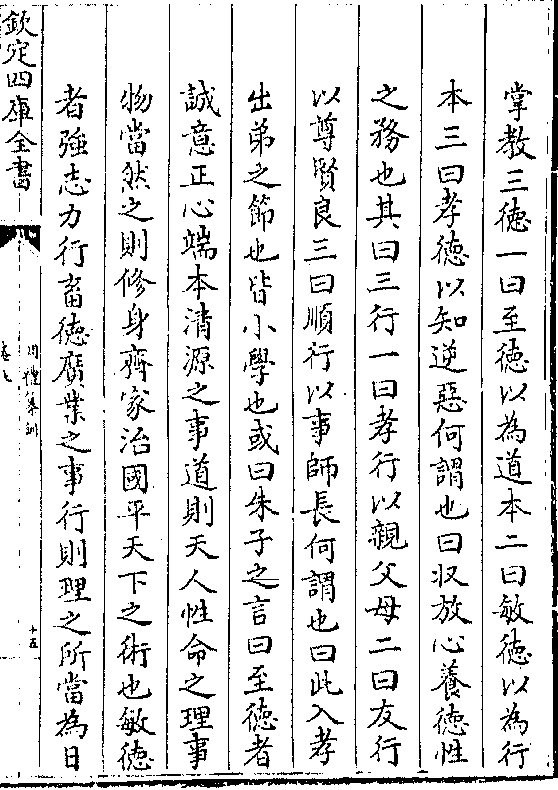 掌教三徳一曰至徳以為道本二曰敏徳以為行
本三曰孝徳以知逆惡何謂也曰収放心養徳性
之務也其曰三行一曰孝行以親父母二曰友行
以尊賢良三曰順行以事師長何謂也曰此入孝
出弟之節也皆小學也或曰朱子之言曰至徳者
誠意正心端本清源之事道則天人性命之理事
物當然之則修身齊家治國平天下之術也敏徳
者強志力行畜徳廣業之事行則理之所當為日
欽定四庫全書
周禮纂訓
卷九
十五